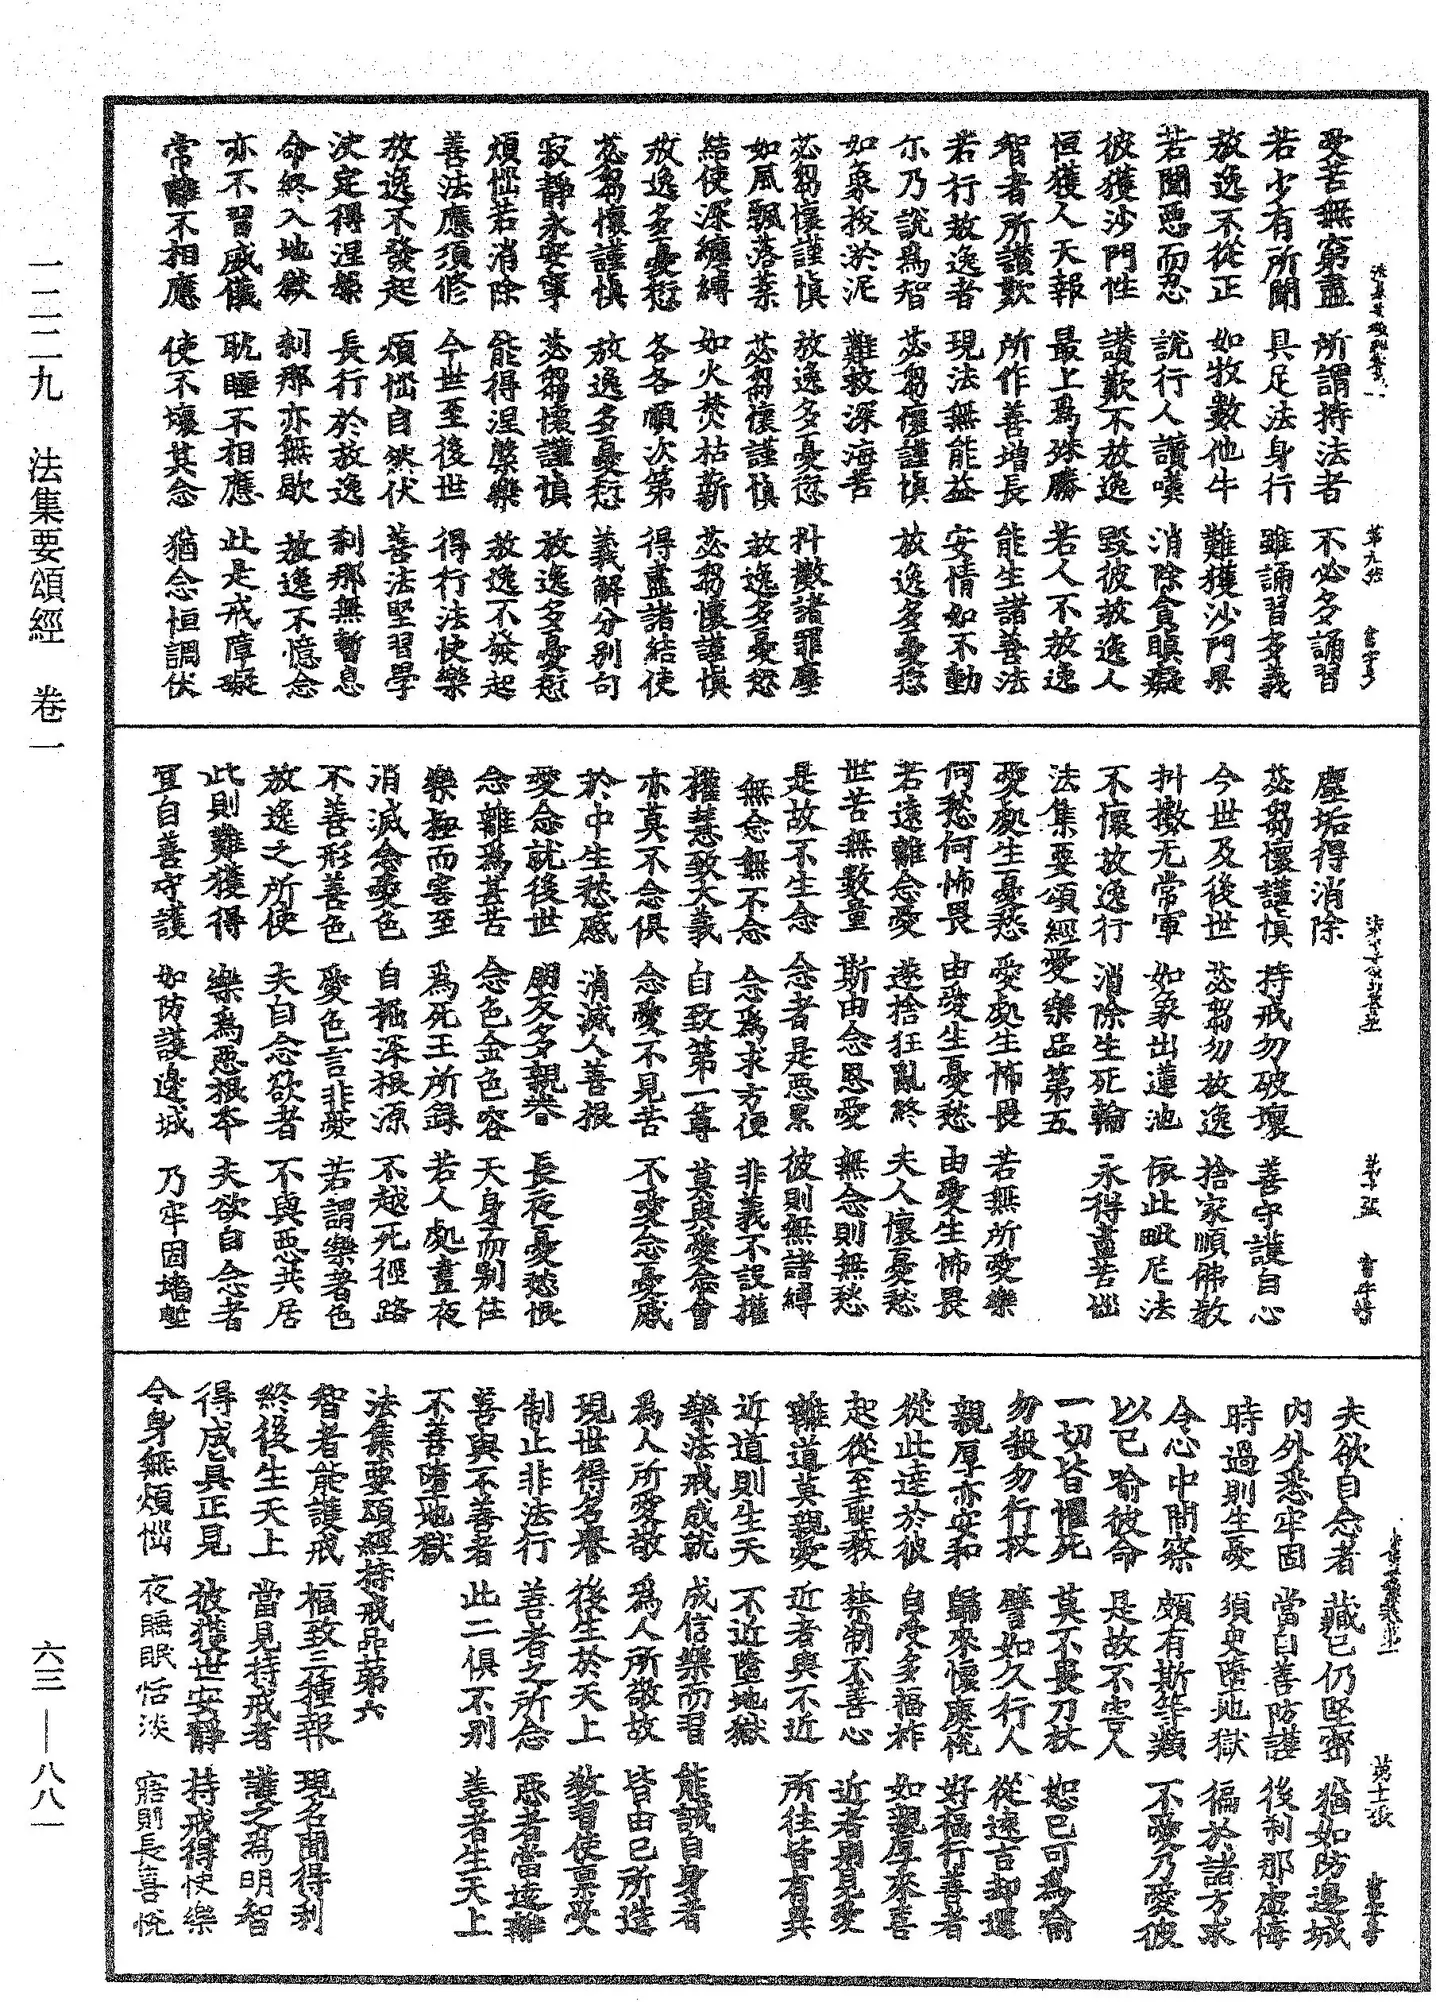 受苦無窮盡 所謂持法者 不必多誦習
若少有所聞 具足法身行 雖誦習多義
放逸不從正 如牧數他牛 難獲沙門果
若聞惡而忍 說行人讚嘆 消除貪瞋癡
彼獲沙門性 讚歎不放逸 毀彼放逸人
恒獲人天報 最上為殊勝 若人不放逸
智者所讚歎 所作善增長 能生諸善法
若行放逸者 現法無能益 安情如不動
尒乃說為智 苾芻懷謹慎 放逸多憂愆
如象拔淤泥 難救深海苦
苾芻懷謹慎 放逸多憂愆 抖擻諸罪塵
如風飄落葉 苾芻懷謹慎 放逸多憂愆
結使深纏縛 如火焚枯薪 苾芻懷謹慎
放逸多憂愆 各各順次第 得盡諸結使
苾芻懷謹慎 放逸多憂愆 義解分別句
寂靜永安寧 苾芻懷謹慎 放逸多憂愆
煩惱若消除 能得涅槃樂 放逸不發起
善法應須修 今世至後世 得行法快樂
放逸不發起 煩惱自然伏 善法堅習學
決定得涅槃 長行於放逸 剎那無暫息
命終入地獄 剎那亦無歇 放逸不憶念
亦不習威儀 耽睡不相應 此是戒障礙
常離不相應 使不壞其念 猶念恒調伏
塵垢得消除
苾芻懷謹慎 持戒勿破壞 善守護自心
今世及後世 苾芻勿放逸 捨家順佛教
抖擻无常軍 如象出蓮池 依此毗尼法
不懷放逸行 消除生死輪 永得盡苦惱
法集要頌經愛樂品第五
愛處生憂愁 愛處生怖畏 若無所愛樂
何愁何怖畏 由愛生憂愁 由愛生怖畏
若遠離念愛 遂捨狂亂終 夫人懷憂愁
世苦無數量 斯由念恩愛 無念則無愁
是故不生念 念者是惡累 彼則無諸縛
無念無不念 念為求方便 非義不設權
權慧致大義 自致第一尊 莫與愛念會
亦莫不念俱 念愛不見苦 不愛念憂慼
於中生愁慼 消滅人善根
愛念就後世 朋友多親眷 長夜憂愁恨
念離為甚苦 念色金色容 天身而別住
樂極而害至 為死王所錄 若人處晝夜
消滅念愛色 自掘深根源 不越死徑路
不善形善色 愛色言非愛 若謂樂著色
放逸之所使 夫自念欲者 不與惡共居
此則難獲得 樂為惡根本 夫欲自念者
宜自善守護 如防護邊城 乃牢固墻塹
夫欲自念者 藏已仍堅密 猶如防邊城
內外悉牢固 當自善防護 後剎那虛悔
時過則生憂 須臾墮地獄 徧於諸方求
令心中間察 頗有斯等類 不愛乃愛彼
以己喻彼命 是故不害人
一切皆懼死 莫不畏刀杖 恕已可為喻
勿殺勿行杖 譬如久行人 從遠吉却還
親厚亦安和 歸來懷慶悅 好福行善者
從此達於彼 自受多福祚 如親厚來喜
起從至聖教 禁制不善心 近者則見愛
離道莫親愛 近者與不近 所往皆有異
近道則生天 不近墮地獄
樂法戒成就 成信樂而習 能誡自身者
為人所愛敬 為人所敬故 皆由己所造
現世得名譽 後生於天上 教習使稟受
制止非法行 善者之所念 惡者當遠離
善與不善者 此二俱不別 善者生天上
不善墮地獄
法集要頌經持戒品第六
智者能護戒 福致三種報 現名聞得利
終後生天上 當見持戒者 護之為明智
得成具正見 彼獲世安靜 持戒得快樂
令身無煩惱 夜睡眠恬淡 寤則長喜悅
一一二九 法集要頌經 卷一
六三—八八一